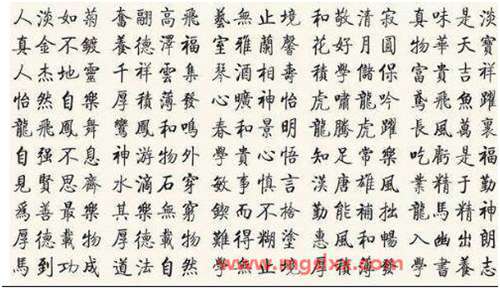 人淡如菊 奮翮高飛 藝無止境 和敬清寂 真味是淡
真金不鍍 養德澤福 室雅蘭馨 花好月圓 物華天寶
人杰地靈 千祥雲集 琴酒相壽 學儲保 富貴吉祥
怡然自樂 厚積薄發 心曠神怡 虎嘯龍吟 鳶飛魚躍
龍飛鳳舞 鸞鳳和鳴 春和景明 龍騰虎躍 長風萬裏
自强不息 神游物外 學貴心悟 知足常樂 吃虧是福
見賢思齊 水滴石穿 敏事慎言 漢唐雄風 業精于勤
爲善最樂 其樂無窮 鍥而不捨 勤能補拙 龍馬精神
厚德載物 厚德載物 難得糊塗 惠風和暢 入幽出朗
馬到功成 道法自然 學無止境 學書養志